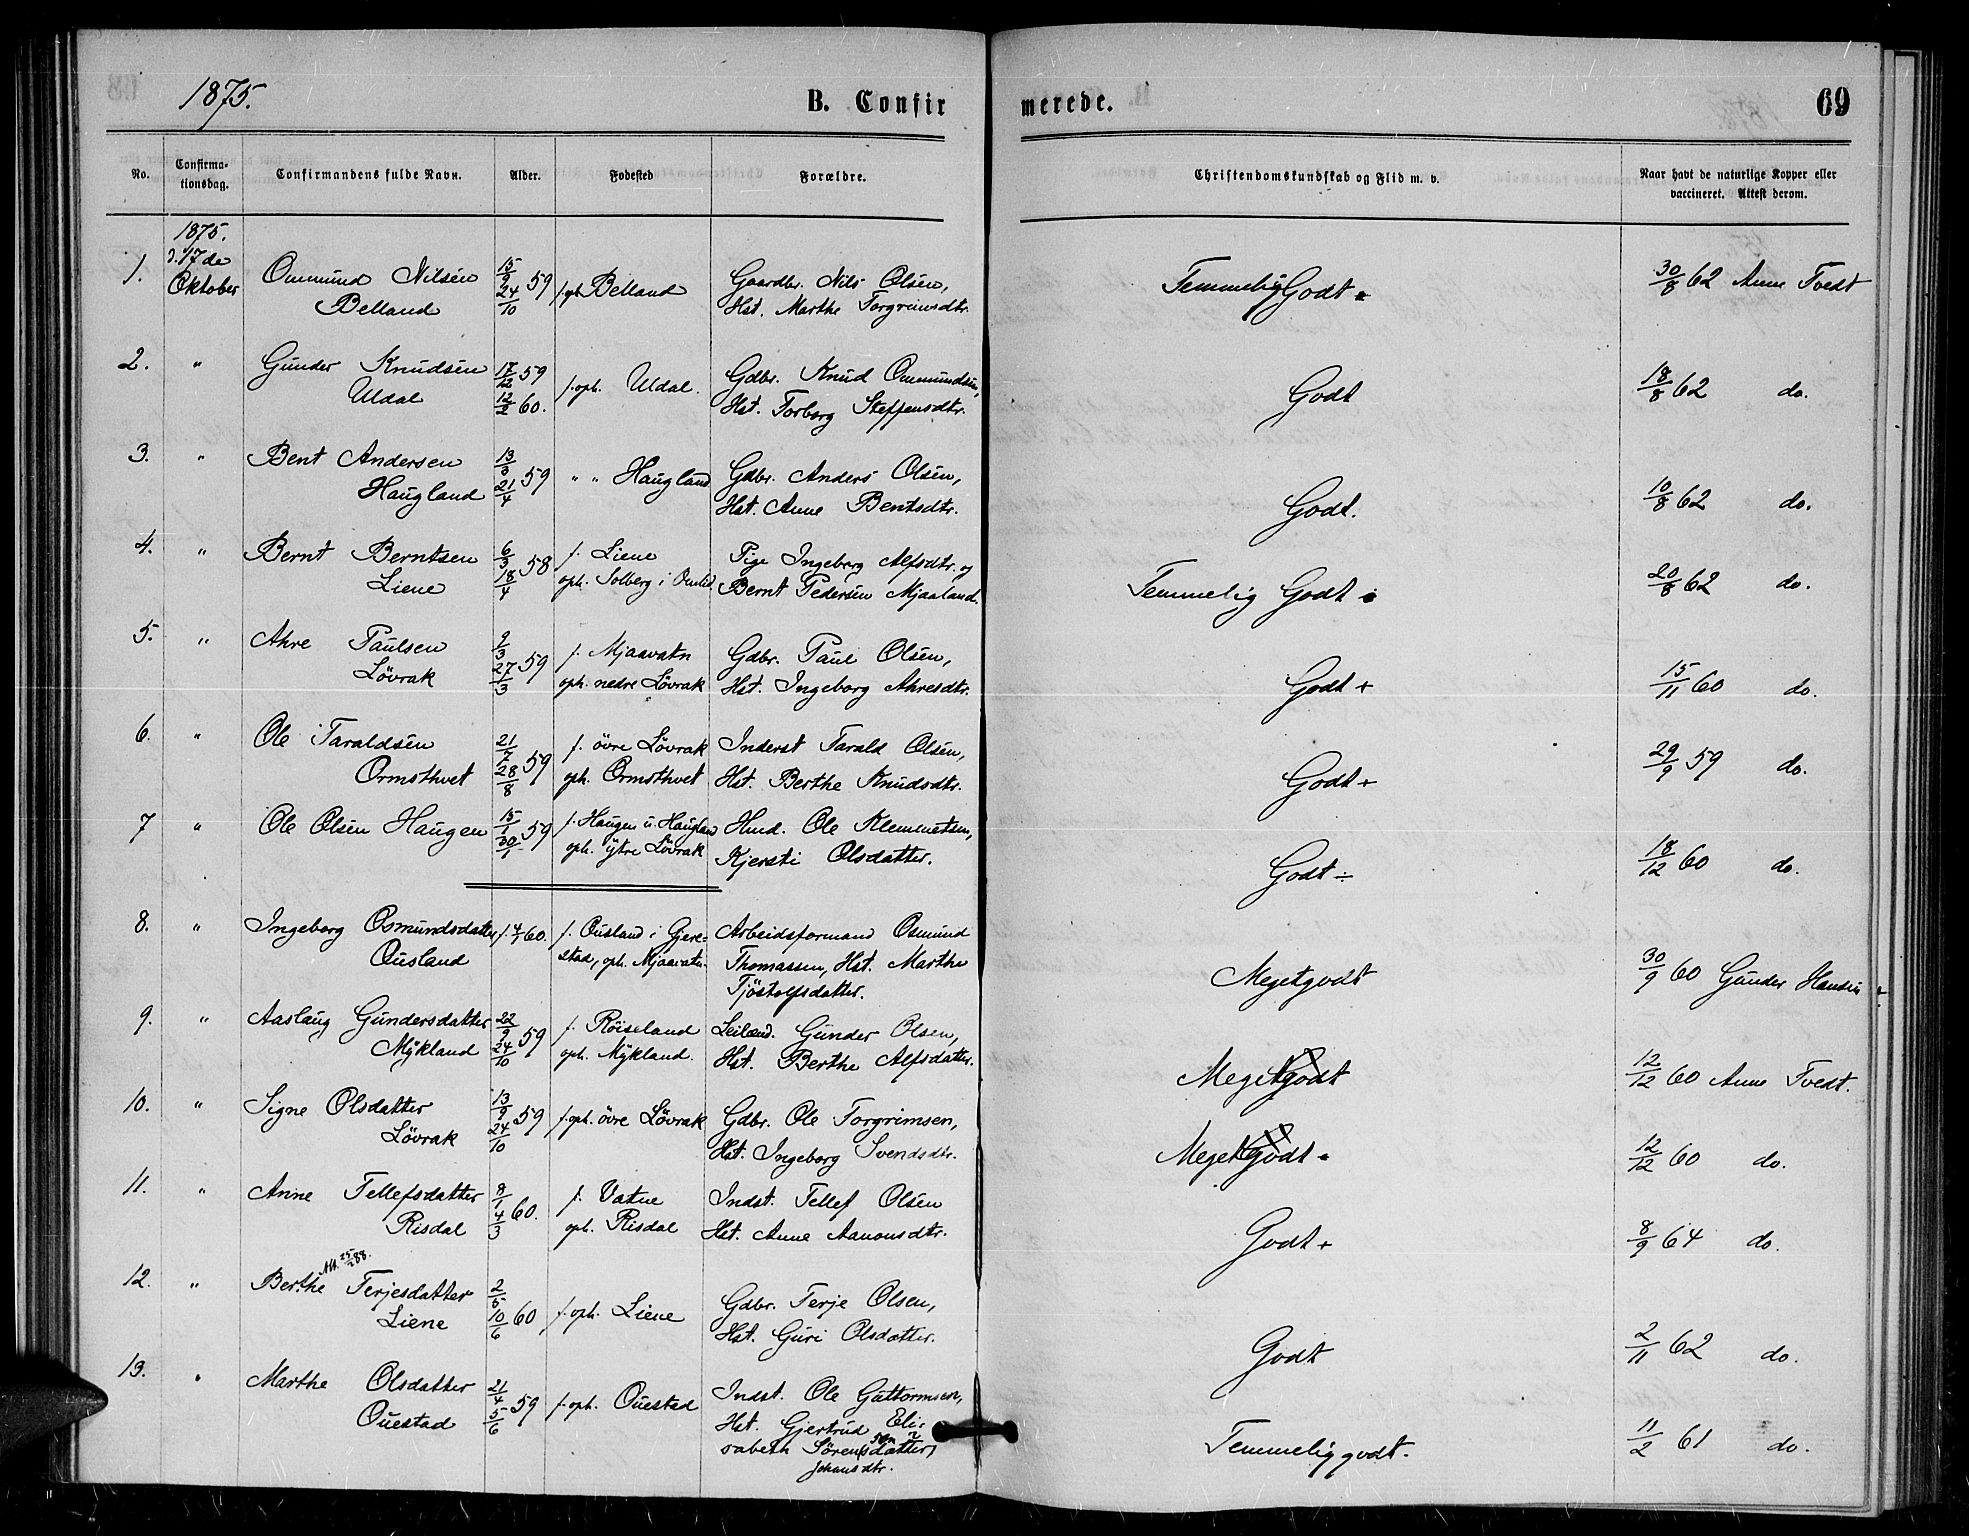 1875.
B. Confirmerede.
69
No.
Confirmationsdag.
Confirmandens fulde Navn.
Alder.
Fødested
Forældre.
Christendomskundskab og Flid m. v.
Naar havt de naturlige Kopper eller vaccineret. Attest derom.
1875.
d. 17de
Oktober
1. Ommund Nilsen 15/9 59 f. oph. Belland Gaardbr. Nils Olsen, Temmelig Godt 30/8 62 Anne Tvedt
Belland 24/10 Hst. Marthe Torgrimsdtr.
2. " Gunder Knudsen 17/12 59 f. oph. Uldal. Gdbr. Knud Ommundsen, Godt 18/8 62 do.
Uldal 12/2 60. Hst. Torborg Steffensdtr.
3. " Bent Andersen 13/3 59 " " Haugland Gdbr. Anders Olsen, Godt. 10/8 62 do.
Haugland 21/4 Hst. Anne Bentsdtr.
4. " Bernt Berntsen 6/3 58 f. Liene Pige Ingeborg Alfsdtr. og Temmelig Godt 20/8 62 do.
Liene 18/4 oph. Solberg i Omlid Bernt Pedersen Mjaaland.
5. " Ahre Paulsen 9/3 59 f. Mjaavatn Gdbr. Paul Olsen, Godt + 15/11 60 do.
Lövrak 27/3 oph. nedre Lövrak Hst. Ingeborg Ahresdtr.
6. " Ole Taraldsen 21/7 59 f. övre Lövrak Inderst Tarald Olsen, Godt + 29/9 59 do.
Ormsthvet 28/8 oph. Ormsthvet Hst. Berthe Knudsdtr.
7 " Ole Olsen Haugen 15/1 59 f. Haugen u. Haugland Hmd. Ole Klemmetsen, Godt ÷ 18/12 60 do.
30/1 oph. ytre Lövrak Kjersti Olsdatter.
8. " Ingeborg Osmundsdatter f. 4/1 60. f. Ousland i Gjere- Arbeidsformand Osmund Megetgodt 30/9 60 Gunder Hansen
Ousland stad, oph. Mjaavatn. Thomassen, Hst. Marthe
Tjöstolfsdatter.
9. " Aaslaug Gundersdatter 22/9 59 f. Röiseland Leilænd. Gunder Olsen, Megetgodt 12/12 60 Anne Tvedt.
Mykland 24/10 oph. Mykland. Hst. Berthe Alfsdatter.
10. " Signe Olsdatter 13/9 59 f. oph. övre Lövrak Gdbr. Ole Torgrimsen, Megetgodt 12/12 60 do.
Lövrak 24/10 Hst. Ingeborg Svendsdtr.
11. " Anne Tellefsdatter 8/1 60. f. Vatne Indst. Tellef Olsen Godt + 8/9 64 do.
Risdal 4/3 oph. Risdal Hst. Anne Aanonsdtr.
Att. 25/2 88.
12. " Berthe Terjesdatter 2/5 60 f. oph. Liene Gdbr. Terje Olsen, Godt 2/11 62 do.
Liene 10/6 Hst. Guri Olsdatter.
13. " Marthe Olsdatter 21/4 59 f. oph. Ouestad Indst. Ole Guttormsen, Temmelig godt. 11/2 61 do.
Ouestad 5/6 Hst. Gjertrud Eli-
sabeth Sörensdatter
Johansdtr.